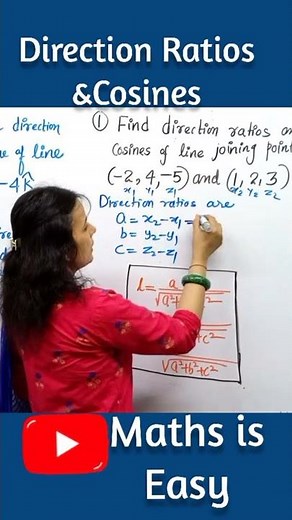 Direction Ratios
&Cosines
direction
of line
-4k̂
① Find direction ratios
Cosines of line joining
(-2, 4, -5) and (1, 2, 3)
x₁ y₁ z₁ x₂ y₂ z₂
Direction ratios are
a = x₂-x₁ =
b = y₂-y₁
c = z₂-z₁
l = a
√a²+
+c²
√a²+b²+c²
Maths is
Easy